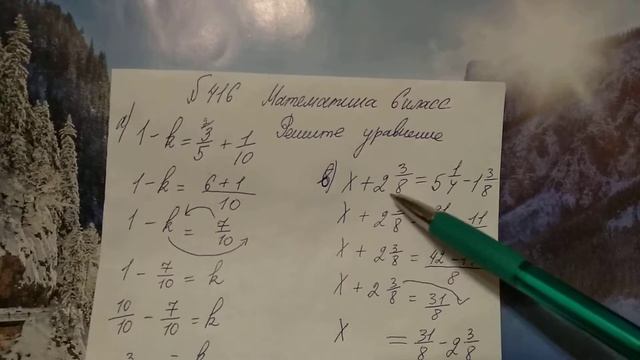 №416 Математика 6 класс
Решите уравнение
а) 1 - k = 3/5 + 1/10
1 - k = (6 + 1)/10
1 - k = 7/10
1 - 7/10 = k
10/10 - 7/10 = k
в) x + 2 3/8 = 5 1/4 - 1 3/8
x + 2
x + 2 3/8 =
x + 2 3/8 = 31/8
x = 31/8 - 2 3/8